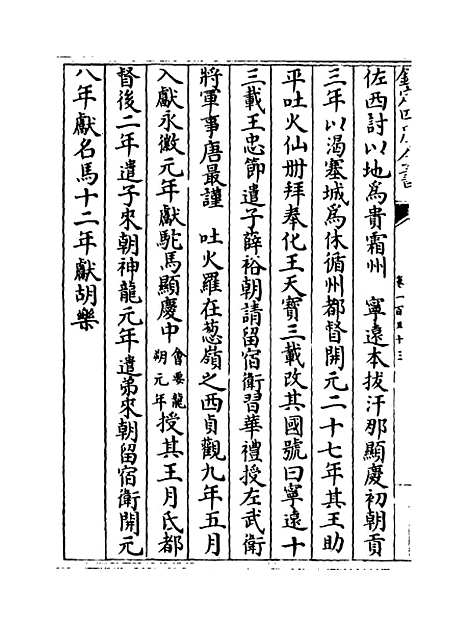 欽定四庫全書
卷一百五十三
佐西討以地爲貴霜州　寧遠本拔汗那顯慶初朝貢
三年以渴塞城爲休循州都督開元二十七年其王助
平吐火仙冊拜奉化王天寶三載改其國號曰寧遠十
三載王忠節遣子薛裕朝請留宿衛習華禮授左武衛
將軍事唐最謹　吐火羅在蔥嶺之西貞觀九年五月
入獻永徽元年獻駝馬顯慶中會要龍朔元年授其王月氏都
督後二年遣子來朝神龍元年遣弟來朝留宿衛開元
八年獻名馬十二年獻胡樂